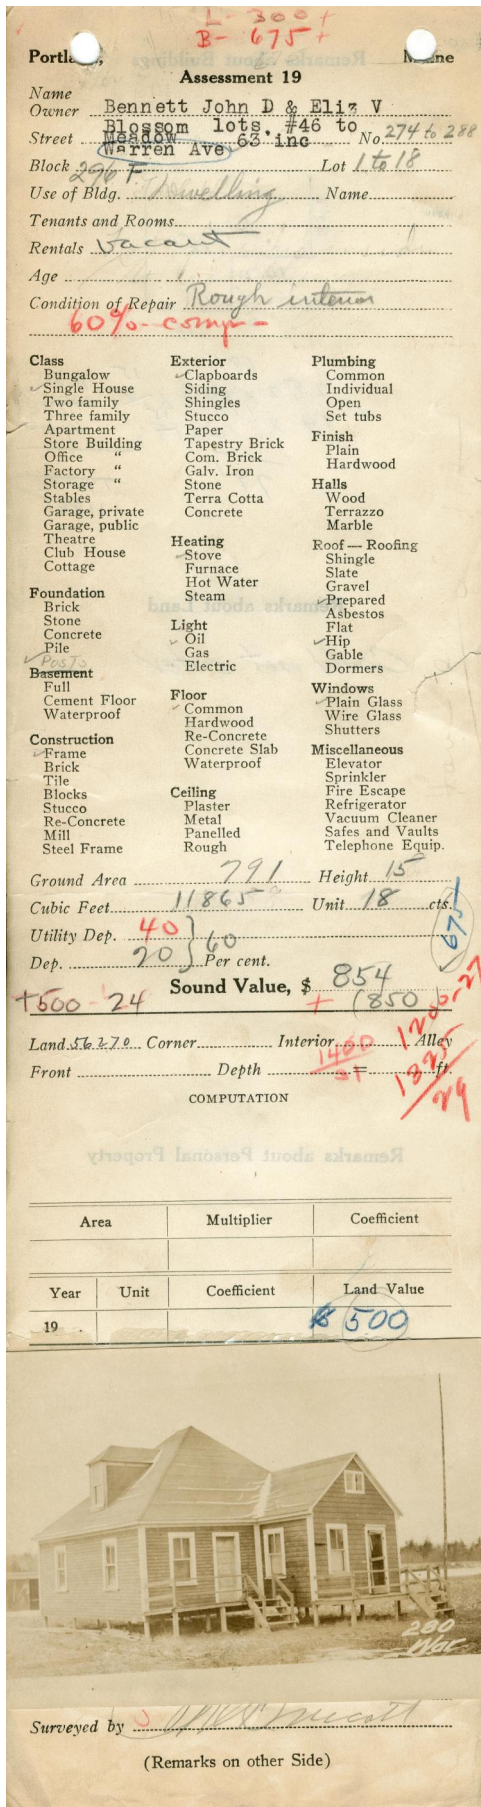 L - 300 +
B - 675 +
Portland, Maine
Assessment 19
Name
Owner Bennett John D & Eliz V
Blossom lots, #46 to
Street Meadow 63 inc No. 274 to 288
Warren Ave
Block 296 F Lot 1 to 18
Use of Bldg. Dwelling Name
Tenants and Rooms
Rentals Vacant
Age
Condition of Repair Rough interior
60% - comp -
Class
Bungalow
✓Single House
Two family
Three family
Apartment
Store Building
Office "
Factory "
Storage "
Stables
Garage, private
Garage, public
Theatre
Club House
Cottage
Foundation
Brick
Stone
Concrete
Pile
✓Posts
Basement
Full
Cement Floor
Waterproof
Construction
✓Frame
Brick
Tile
Blocks
Stucco
Re-Concrete
Mill
Steel Frame
Exterior
✓Clapboards
Siding
Shingles
Stucco
Paper
Tapestry Brick
Com. Brick
Galv. Iron
Stone
Terra Cotta
Concrete
Heating
✓Stove
Furnace
Hot Water
Steam
Light
✓Oil
Gas
Electric
Floor
✓Common
Hardwood
Re-Concrete
Concrete Slab
Waterproof
Ceiling
Plaster
Metal
Panelled
Rough
Plumbing
Common
Individual
Open
Set tubs
Finish
Plain
Hardwood
Halls
Wood
Terrazzo
Marble
Roof — Roofing
Shingle
Slate
Gravel
✓Prepared
Asbestos
Flat
✓Hip
Gable
Dormers
Windows
✓Plain Glass
Wire Glass
Shutters
Miscellaneous
Elevator
Sprinkler
Fire Escape
Refrigerator
Vacuum Cleaner
Safes and Vaults
Telephone Equip.
Ground Area 791 Height 15
Cubic Feet 11865 Unit 18 cts.
Utility Dep. 40
60
Dep. 20 Per cent.
675
Sound Value, $ 854
+500 - 24 + (850)
1200-27
Land 56270 Corner Interior Alley
1400
Front Depth = ft.
1325
29
COMPUTATION
Area Multiplier Coefficient
Year Unit Coefficient Land Value
19 $ 500
280
War
Surveyed by
(Remarks on other Side)